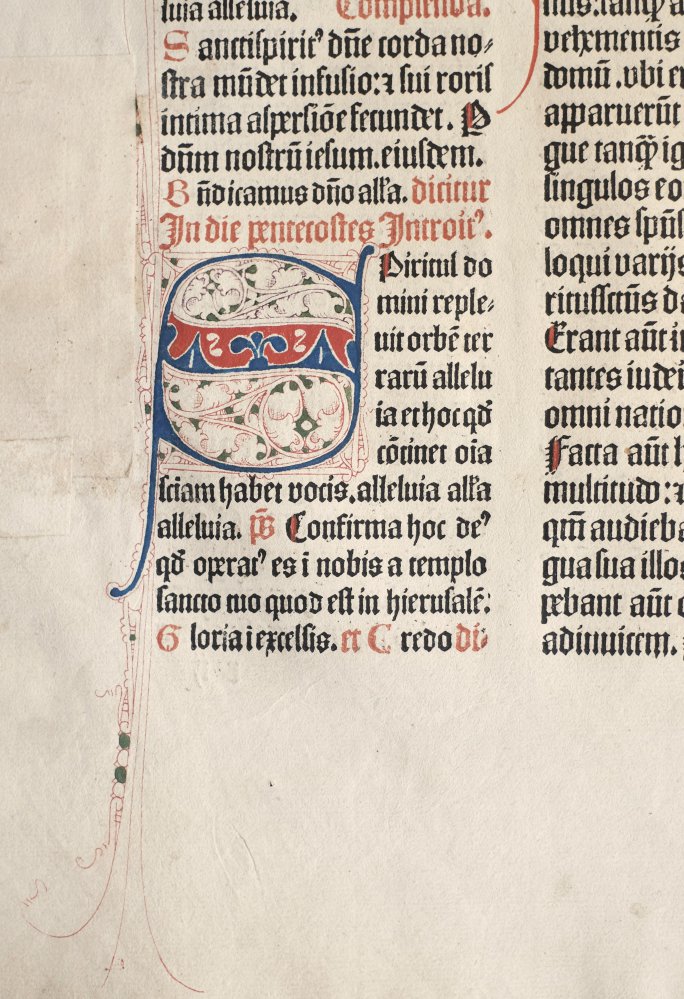 luia alleluia. Complenda.
Sanctispirit⁹ dn̄e corda no⸗
stra mūdet infusio: ⁊ sui roris
intima aspersiōe fecundet. P
dn̄m nostrū iesum. eiusdem.
Bn̄dicamus dn̄o all'a. dicitur
In die pentecostes Introit⁹.
SPiritus do
mini reple⸗
uit orbē ter
rarū allelu
ia et hoc qd̄
cōtinet oīa
sciam habet vocis. alleluia all'a
alleluia. ps̄ Confirma hoc de⁹
qd̄ operat⁹ es ī nobis a templo
sancto tuo quod est in hierusalē:
Gloria ī excelsis. et Credo di⸗
nus: tanq̄
vehementis
domū. vbi
apparuerūt
gue tanq̄
singulos
omnes sp̄us
loqui varijs
ritussctūs
Erant aūt
tantes iudei
omni
Facta aūt
multitudo: ⁊
qm̄
gua sua illos
pebant aūt
adinuicem.